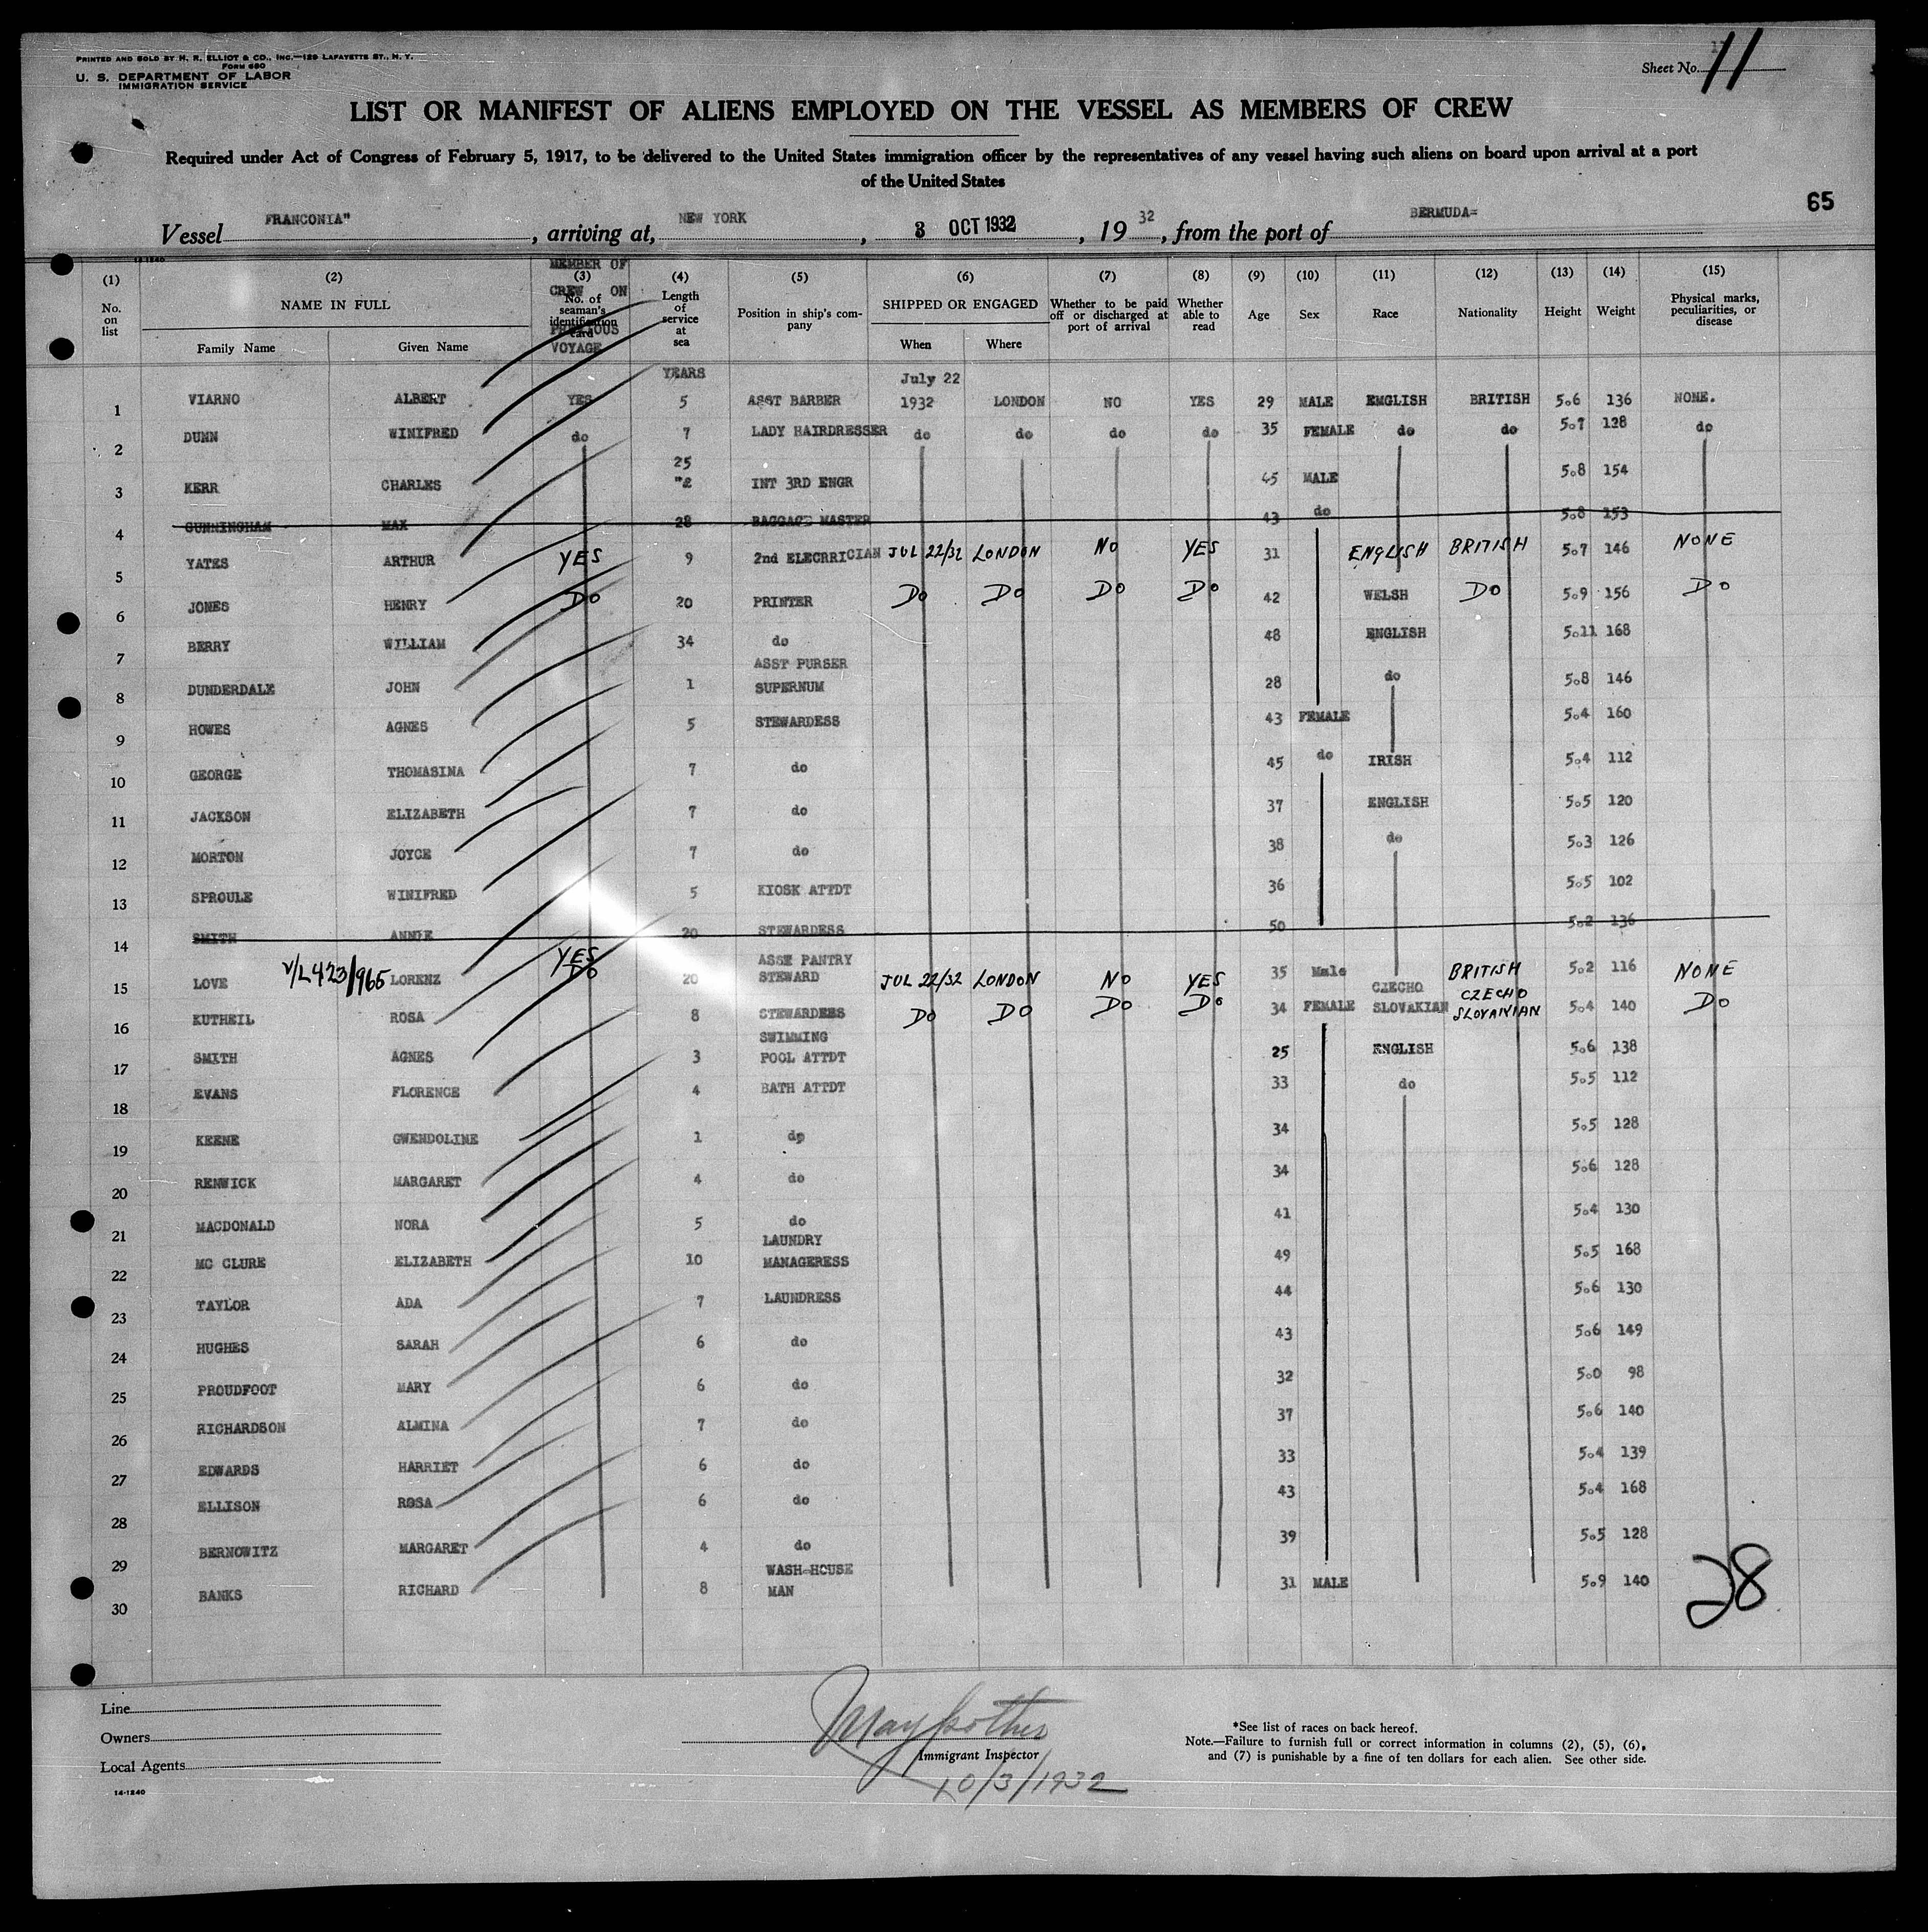 PRINTED AND SOLD BY H. R. ELLIOT & CO., INC.—129 LAFAYETTE ST., N. Y.
FORM 680
U. S. DEPARTMENT OF LABOR
IMMIGRATION SERVICE
Sheet No. 11
LIST OR MANIFEST OF ALIENS EMPLOYED ON THE VESSEL AS MEMBERS OF CREW
Required under Act of Congress of February 5, 1917, to be delivered to the United States immigration officer by the representatives of any vessel having such aliens on board upon arrival at a port
of the United States
65
Vessel FRANCONIA", arriving at, NEW YORK, 3 OCT 1932, 19 32, from the port of BERMUDA=
14-1240
(1) (2) (3) (4) (5) (6) (7) (8) (9) (10) (11) (12) (13) (14) (15)
No. on list NAME IN FULL Family Name Given Name No. of seaman's identification card MEMBER OF CREW ON PREVIOUS VOYAGE Length of service at sea Position in ship's company SHIPPED OR ENGAGED When Where Whether to be paid off or discharged at port of arrival Whether able to read Age Sex Race Nationality Height Weight Physical marks, peculiarities, or disease
YEARS July 22
1 VIARNO ALBERT YES 5 ASST BARBER 1932 LONDON NO YES 29 MALE ENGLISH BRITISH 5.6 136 NONE.
2 DUNN WINIFRED do 7 LADY HAIRDRESSER do do do do 35 FEMALE do do 5.7 128 do
25
3 KERR CHARLES INT 3RD ENGR 45 MALE 5.8 154
4 CUNNINGHAM MAX 28 BAGGAGE MASTER 43 do 5.8 153
5 YATES ARTHUR YES 9 2nd ELECRRICIAN JUL 22/32 LONDON NO YES 31 ENGLISH BRITISH 5.7 146 NONE
6 JONES HENRY DO 20 PRINTER DO DO DO DO 42 WELSH DO 5.9 156 DO
7 BERRY WILLIAM 34 do 48 ENGLISH 5.11 168
ASST PURSER
8 DUNDERDALE JOHN 1 SUPERNUM 28 do 5.8 146
9 HOWES AGNES 5 STEWARDESS 43 FEMALE 5.4 160
10 GEORGE THOMASINA 7 do 45 do IRISH 5.4 112
11 JACKSON ELIZABETH 7 do 37 ENGLISH 5.5 120
12 MORTON JOYCE 7 do 38 do 5.3 126
13 SPROULE WINIFRED 5 KIOSK ATTDT 36 5.5 102
14 SMITH ANNIE 20 STEWARDESS 50 5.2 136
YES ASST PANTRY
15 LOVE V/L423/965 LORENZ DO 20 STEWARD JUL 22/32 LONDON NO YES 35 Male BRITISH 5.2 116 NONE
CZECHO CZECHO
16 KUTHEIL ROSA 8 STEWARDESS DO DO DO DO 34 FEMALE SLOVAKIAN SLOVAKIAN 5.4 140 DO
SWIMMING
17 SMITH AGNES 3 POOL ATTDT 25 ENGLISH 5.6 138
18 EVANS FLORENCE 4 BATH ATTDT 33 do 5.5 112
19 KEENE GWENDOLINE 1 do 34 5.5 128
20 RENWICK MARGARET 4 do 34 5.6 128
21 MACDONALD NORA 5 do 41 5.4 130
LAUNDRY
22 MC CLURE ELIZABETH 10 MANAGERESS 49 5.5 168
23 TAYLOR ADA 7 LAUNDRESS 44 5.6 130
24 HUGHES SARAH 6 do 43 5.6 149
25 PROUDFOOT MARY 6 do 32 5.0 98
26 RICHARDSON ALMINA 7 do 37 5.6 140
27 EDWARDS HARRIET 6 do 33 5.4 139
28 ELLISON ROSA 6 do 43 5.4 168
29 BERNOWITZ MARGARET 4 do 39 5.5 128
WASH-HOUSE
30 BANKS RICHARD 8 MAN 31 MALE 5.9 140
28
Line
Owners
Local Agents
14-1240
Immigrant Inspector
10/3/1932
*See list of races on back hereof.
Note.—Failure to furnish full or correct information in columns (2), (5), (6),
and (7) is punishable by a fine of ten dollars for each alien. See other side.